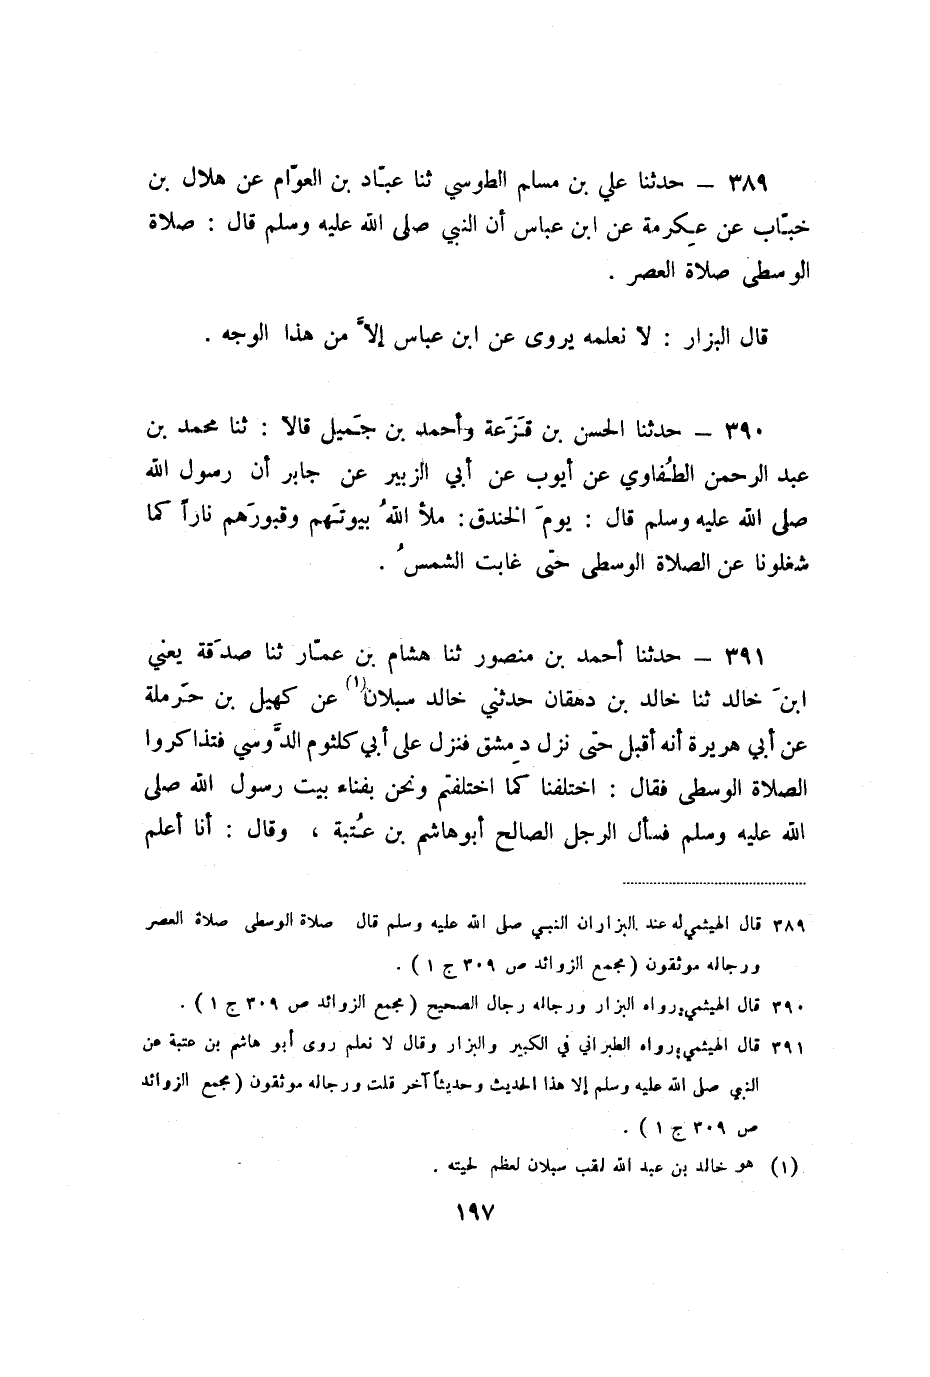 ٣٨٩ – حدثنا علي بن مسلم الطوسي ثنا عبّاد بن العوّام عن هلال بن
خبّاب عن عِكرمة عن ابن عباس أن النبي صلى الله عليه وسلم قال : صلاة
الوسطى صلاة العصر .
قال البزار : لا نعلمه يروى عن ابن عباس إلاَّ من هذا الوجه .
٣٩٠ – حدثنا الحسن بن قَزَعة وأحمد بن جَميل قالا : ثنا محمد بن
عبد الرحمن الطُفاوي عن أيوب عن أبي الزبير عن جابر أن رسول الله
صلى الله عليه وسلم قال : يومَ الخندق : ملأ اللهُ بيوتَهم وقبورَهم ناراً كما
شغلونا عن الصلاة الوسطى حتّى غابت الشمسُ .
٣٩١ – حدثنا أحمد بن منصور ثنا هشام بن عمّار ثنا صدَقة يعني
ابنَ خالد ثنا خالد بن دهقان حدثني خالد سبلان(١) عن كهيل بن حَرملة
عن أبي هريرة أنه أقبل حتى نزل دِمشق فنزل على أبي كلثوم الدَّوسي فتذاكروا
الصلاة الوسطى فقال : اختلفنا كما اختلفتم ونحن بفناء بيت رسول الله صلى
الله عليه وسلم فسأل الرجل الصالح أبوهاشم بن عُتبة ، وقال : أنا أعلم
٣٨٩ قال الهيثمي له عند البزاران النبي صلى الله عليه وسلم قال صلاة الوسطى صلاة العصر
ورجاله موثقون (مجمع الزوائد ص ٣٠٩ ج ١) .
٣٩٠ قال الهيثمي : رواه البزار ورجاله رجال الصحيح ( مجمع الزوائد ص ٣٠٩ ج ١) .
٣٩١ قال الهيثمي : رواه الطبراني في الكبير والبزار وقال لا نعلم روى أبو هاشم بن عتبة عن
النبي صلى الله عليه وسلم إلا هذا الحديث وحديثاً آخر قلت ورجاله موثقون (مجمع الزوائد
ص ٣٠٩ ج ١) .
(١) هو خالد بن عبد الله لقب سبلان لعظم لحيته .
١٩٧